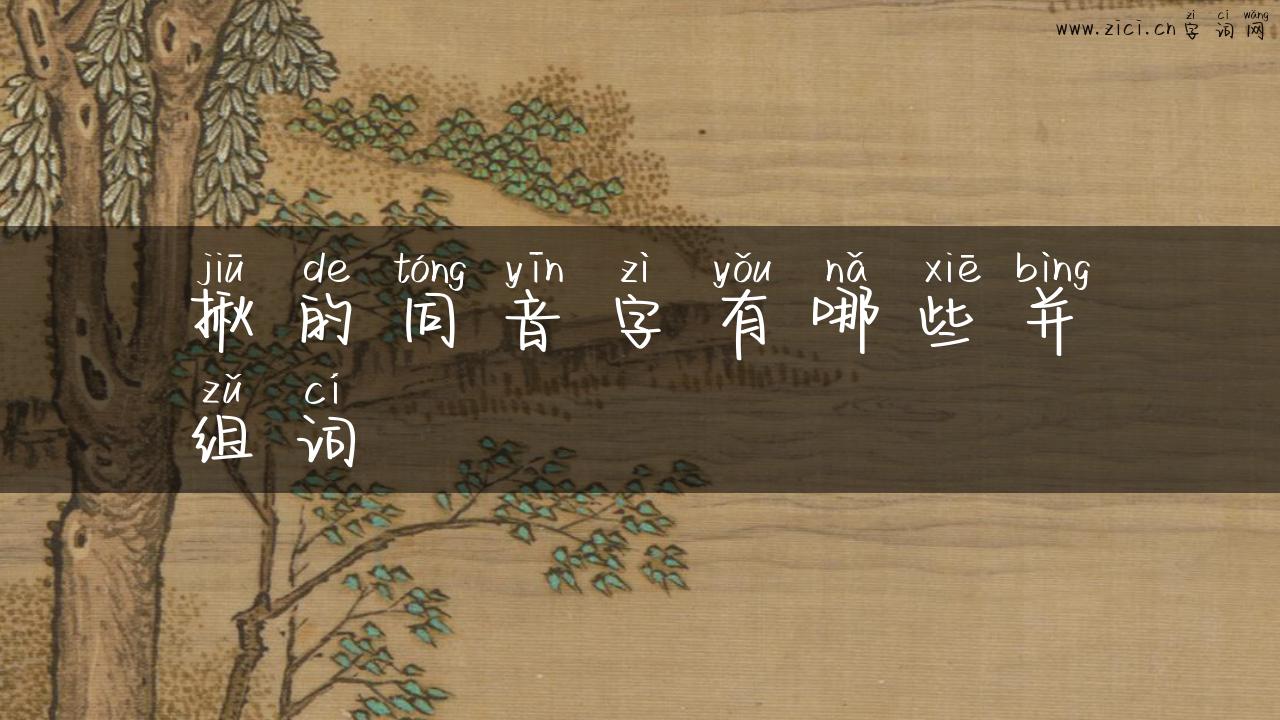 zì cí wǎng
www.zici.cn 字词网
jiū de tóng yīn zì yǒu nǎ xiē bìng
揪的同音字有哪些并
zǔ cí
组词